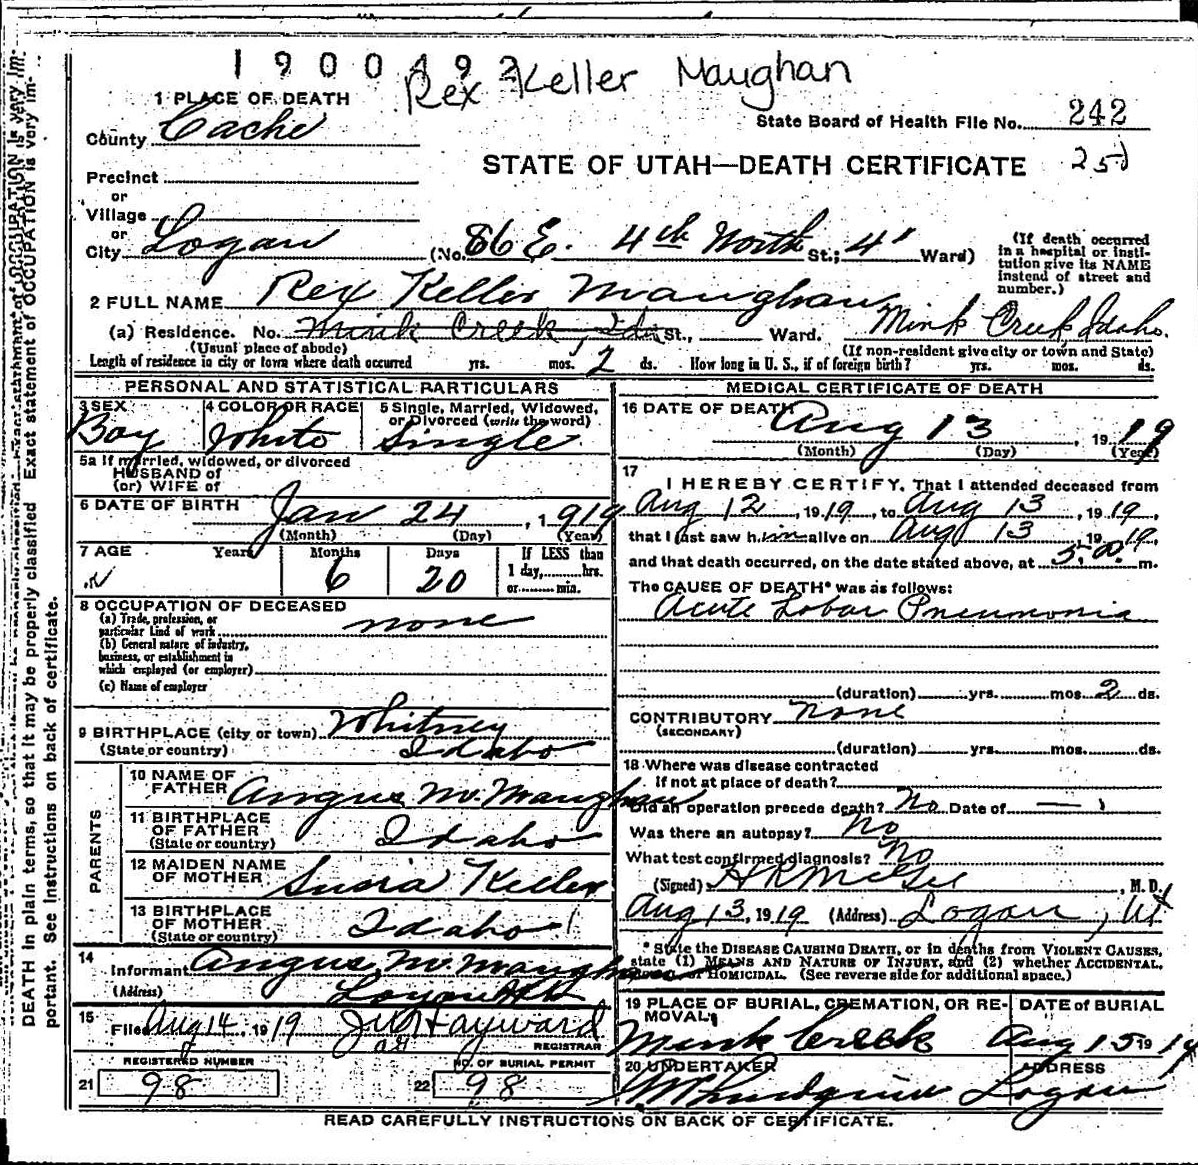 1900492
Rex Keller Maughan
1 PLACE OF DEATH
County Cache
State Board of Health File No. 242
STATE OF UTAH—DEATH CERTIFICATE
Precinct
or
Village
or
City Logan (No. 86 E. 4th North St.; 4" Ward)
(If death occurred in a hospital or insti-
tution give its NAME instead of street and number.)
2 FULL NAME Rex Keller Maughan
(a) Residence. No. Mink Creek, Ida St., Ward. Mink Creek, Idaho.
(Usual place of abode) (If non-resident give city or town and State)
Length of residence in city or town where death occurred yrs. mos. 2 ds. How long in U. S., if of foreign birth? yrs. mos. ds.
PERSONAL AND STATISTICAL PARTICULARS
3 SEX Boy
4 COLOR OR RACE White
5 Single, Married, Widowed, or Divorced (write the word) Single
5a If married, widowed, or divorced
HUSBAND of
(or) WIFE of
6 DATE OF BIRTH Jan 24, 1919
(Month) (Day) (Year)
7 AGE Years Months 6 Days 20 If LESS than 1 day, hrs. or min.
8 OCCUPATION OF DECEASED
(a) Trade, profession, or particular kind of work none
(b) General nature of industry, business, or establishment in which employed (or employer)
(c) Name of employer
9 BIRTHPLACE (city or town) Whitney
(State or country) Idaho
PARENTS
10 NAME OF FATHER Angus M. Maughan
11 BIRTHPLACE OF FATHER (State or country) Idaho
12 MAIDEN NAME OF MOTHER Susia Keller
13 BIRTHPLACE OF MOTHER (State or country) Idaho
14 Informant Angus M. Maughan
(Address) Logan
15 Filed Aug 14, 1919 Hayward
REGISTRAR
REGISTERED NUMBER
21 98
NO. OF BURIAL PERMIT
22 98
MEDICAL CERTIFICATE OF DEATH
16 DATE OF DEATH Aug 13, 1919
(Month) (Day) (Year)
17 I HEREBY CERTIFY, That I attended deceased from
Aug 12, 1919, to Aug 13, 1919,
that I last saw him alive on Aug 13 1919,
and that death occurred, on the date stated above, at 5. a. m.
The CAUSE OF DEATH* was as follows:
Acute Lobar Pneumonia
(duration) yrs. mos. 2 ds.
CONTRIBUTORY None
(SECONDARY)
(duration) yrs. mos. ds.
18 Where was disease contracted
if not at place of death?
Did an operation precede death? No Date of —
Was there an autopsy? No
What test confirmed diagnosis? No
(Signed) H R McGee, M. D.
Aug 13, 1919 (Address) Logan, Ut
* State the DISEASE CAUSING DEATH, or in deaths from VIOLENT CAUSES,
state (1) MEANS AND NATURE OF INJURY, and (2) whether ACCIDENTAL,
or HOMICIDAL. (See reverse side for additional space.)
19 PLACE OF BURIAL, CREMATION, OR RE-
MOVAL Mink Creek
DATE of BURIAL Aug 15 1919
20 UNDERTAKER Lundquist
ADDRESS Logan
READ CAREFULLY INSTRUCTIONS ON BACK OF CERTIFICATE.
DEATH in plain terms, so that it may be properly classified. Exact statement of OCCUPATION is very im-
portant. See instructions on back of certificate.